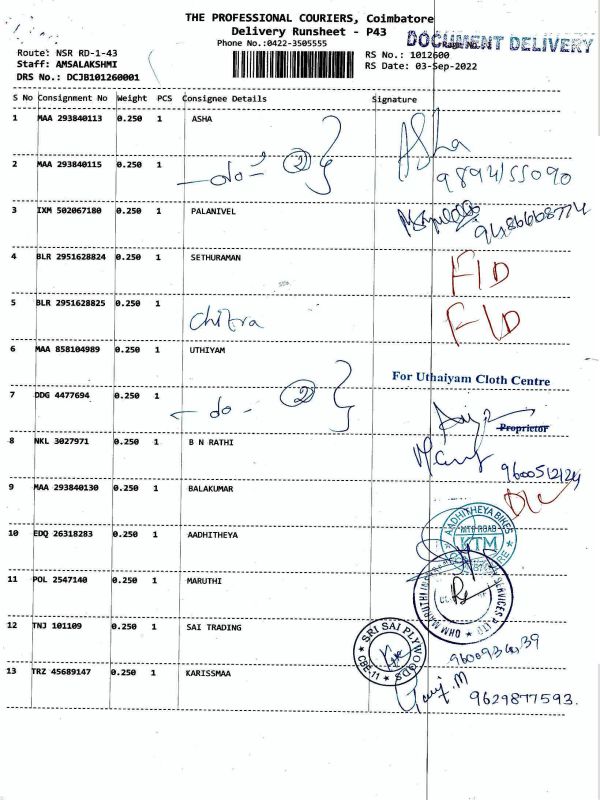 THE PROFESSIONAL COURIERS, Coimbatore
Delivery Runsheet - P43
Phone No.:0422-3505555
DOCUMENT DELIVERY
Route: NSR RD-1-43
Staff: AMSALAKSHMI
DRS No.: DCJB101260001
RS No.: 1012600
RS Date: 03-Sep-2022
S No Consignment No Weight PCS Consignee Details Signature
1 MAA 293840113 0.250 1 ASHA Asha
2 MAA 293840115 0.250 1 -do- 2 9894155090
3 IXM 502067180 0.250 1 PALANIVEL
4 BLR 2951628824 0.250 1 SETHURAMAN F/D
5 BLR 2951628825 0.250 1 Chitra F/D
6 MAA 858104989 0.250 1 UTHIYAM
For Uthaiyam Cloth Centre
7 DDG 4477694 0.250 1 -do- 2
Proprietor
8 NKL 3027971 0.250 1 B N RATHI 9600512124
9 MAA 293840130 0.250 1 BALAKUMAR
10 EDQ 26318283 0.250 1 AADHITHEYA
AADHITHEYA BIKES
MTP ROAD
KTM
11 POL 2547140 0.250 1 MARUTHI
12 TNJ 101109 0.250 1 SAI TRADING
SRI SAI PLYWOODS
CBE-11
13 TRZ 45689147 0.250 1 KARISSMAA 9629877593.